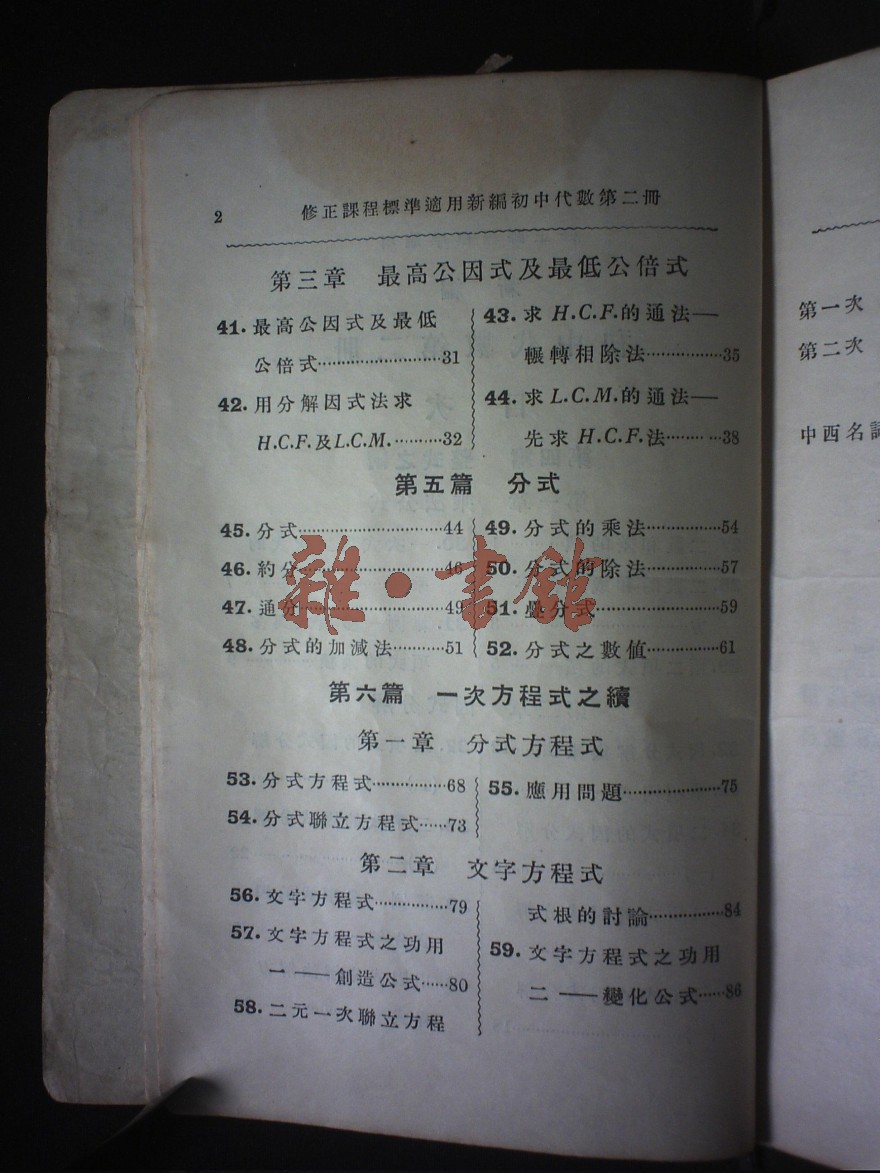 2 修正課程標準適用新編初中代數第二冊
第三章 最高公因式及最低公倍式
41. 最高公因式及最低
公倍式……………………31
42. 用分解因式法求
H.C.F.及L.C.M.………32
43. 求 H.C.F.的通法——
輾轉相除法……………35
44. 求 L.C.M.的通法——
先求 H.C.F.法…………38
第五篇 分式
45. 分式………………………44
46. 約分………………………46
47. 通分………………………49
48. 分式的加減法…………51
49. 分式的乘法……………54
50. 分式的除法……………57
51. 疊分式……………………59
52. 分式之數值……………61
第六篇 一次方程式之續
第一章 分式方程式
53. 分式方程式……………68
54. 分式聯立方程式……73
55. 應用問題………………75
第二章 文字方程式
56. 文字方程式……………79
57. 文字方程式之功用
一——創造公式……80
58. 二元一次聯立方程
式根的討論……………84
59. 文字方程式之功用
二——變化公式……86
第一次
第二次
中西名詞
雜·書館